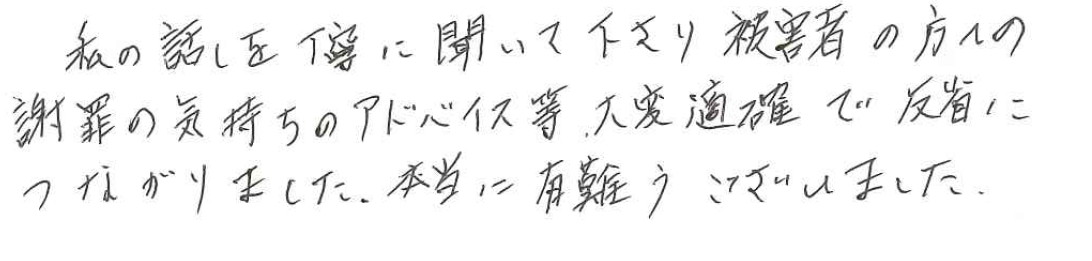 私の話しを丁寧に聞いて下さり被害者の方への
謝罪の気持ちのアドバイス等、大変適確で反省に
つながりました。本当に有難うございました。